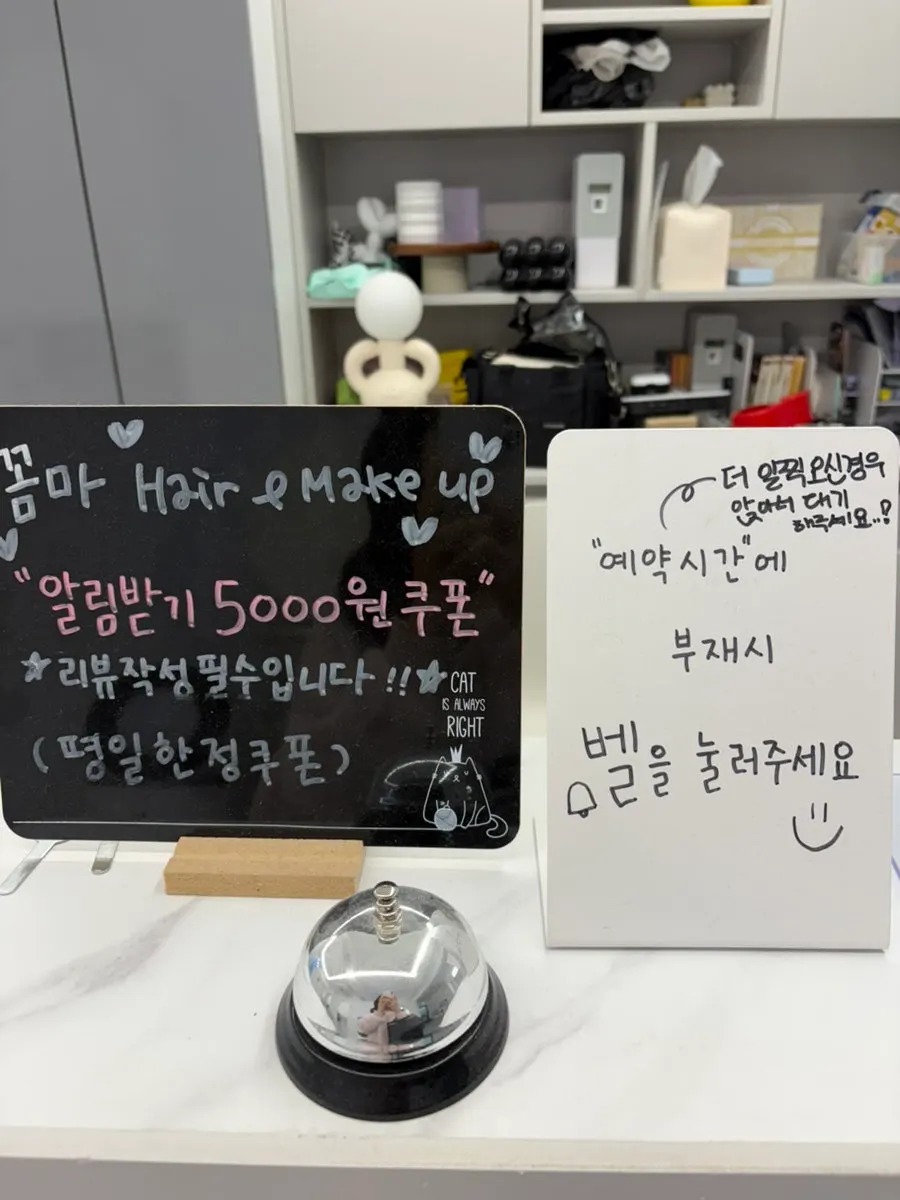 꼼마 Hair & Make up
"알림받기 5000원 쿠폰"
☆리뷰작성 필수입니다!!☆
(평일한정쿠폰)
CAT
IS ALWAYS
RIGHT
더 일찍 오신경우
앉아서 대기
해주세요..!
"예약시간"에
부재시
벨을 눌러주세요